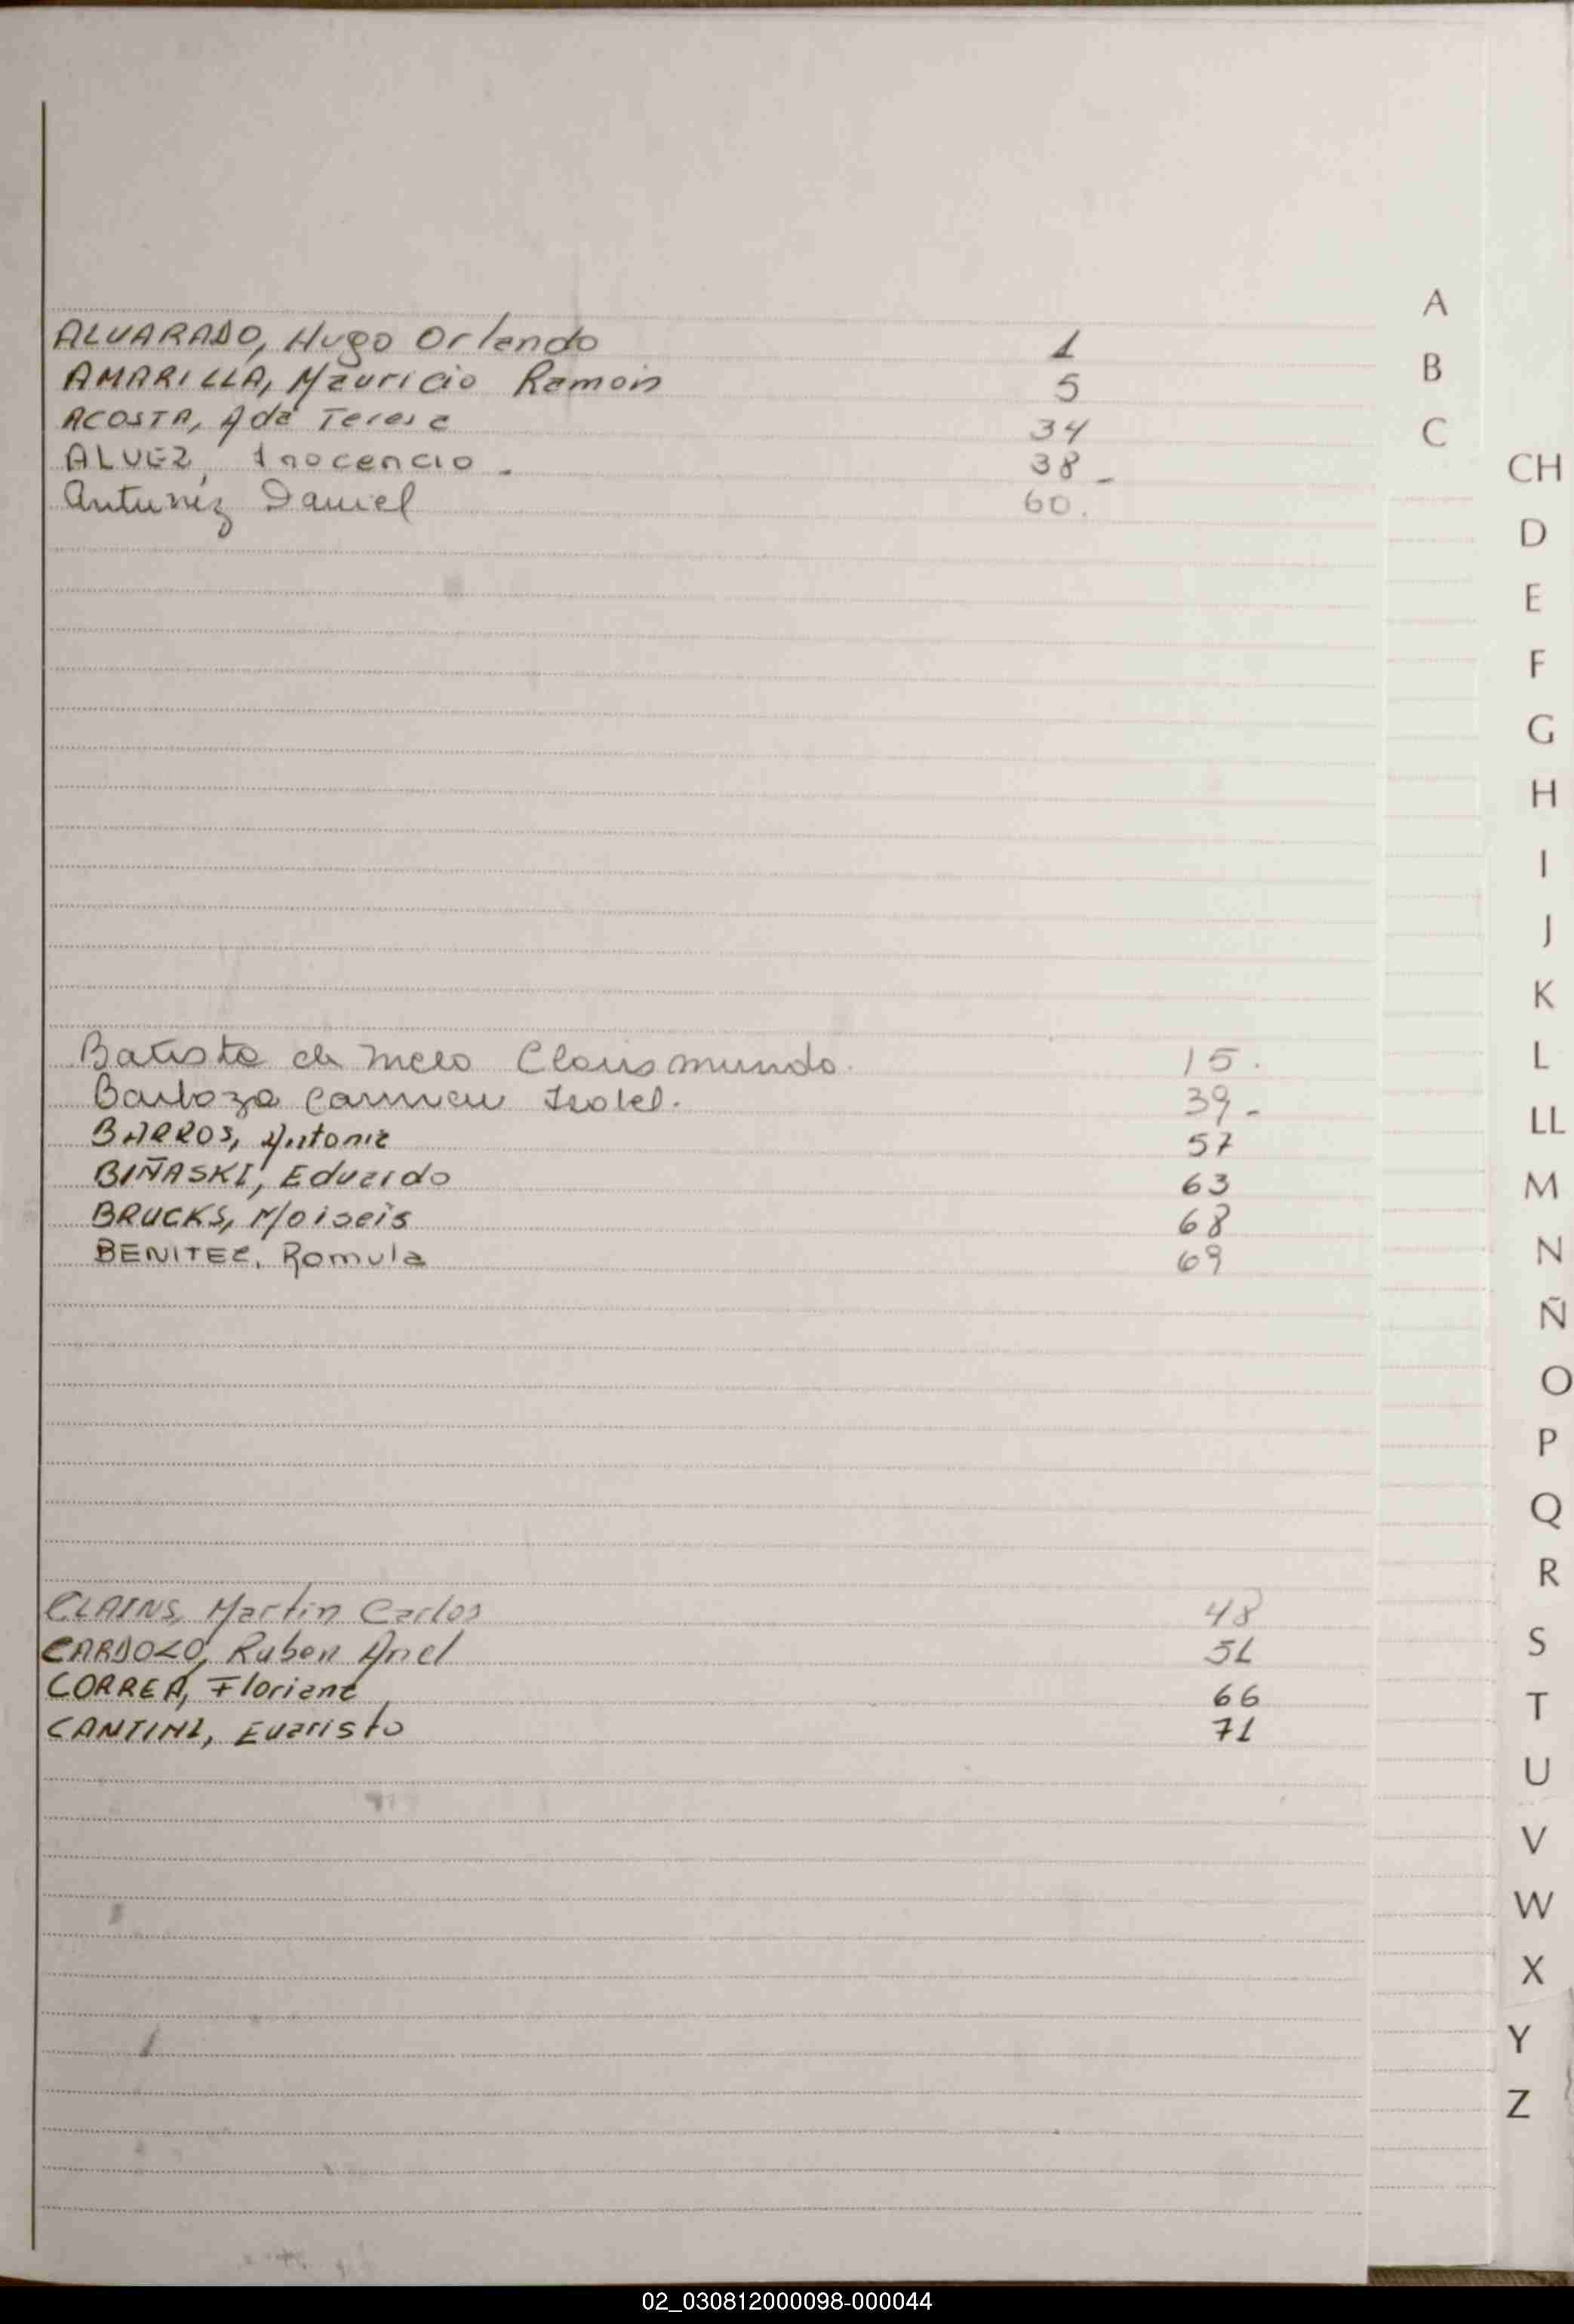 ALVARADO, Hugo Orlando 1
AMARILLA, Mauricio Ramón 5
ACOSTA, Ada Teresa 34
ALVEZ, Inocencio. 38-
Antunéz Daniel 60.
Batista de Melo Clarismundo. 15.
Barboza Carmen Isabel. 39-
BARROS, Antonia 57
BIÑASKI, Eduardo 63
BRUCKS, Moiseis 68
BENITEZ, Romula 69
CLAINS, Martin Carlos 48
CARDOZO, Ruben Ariel 51
CORREA, Floriana 66
CANTINI, Evaristo 71
A
B
C
CH
D
E
F
G
H
I
J
K
L
LL
M
N
Ñ
O
P
Q
R
S
T
U
V
W
X
Y
Z
02_030812000098-000044